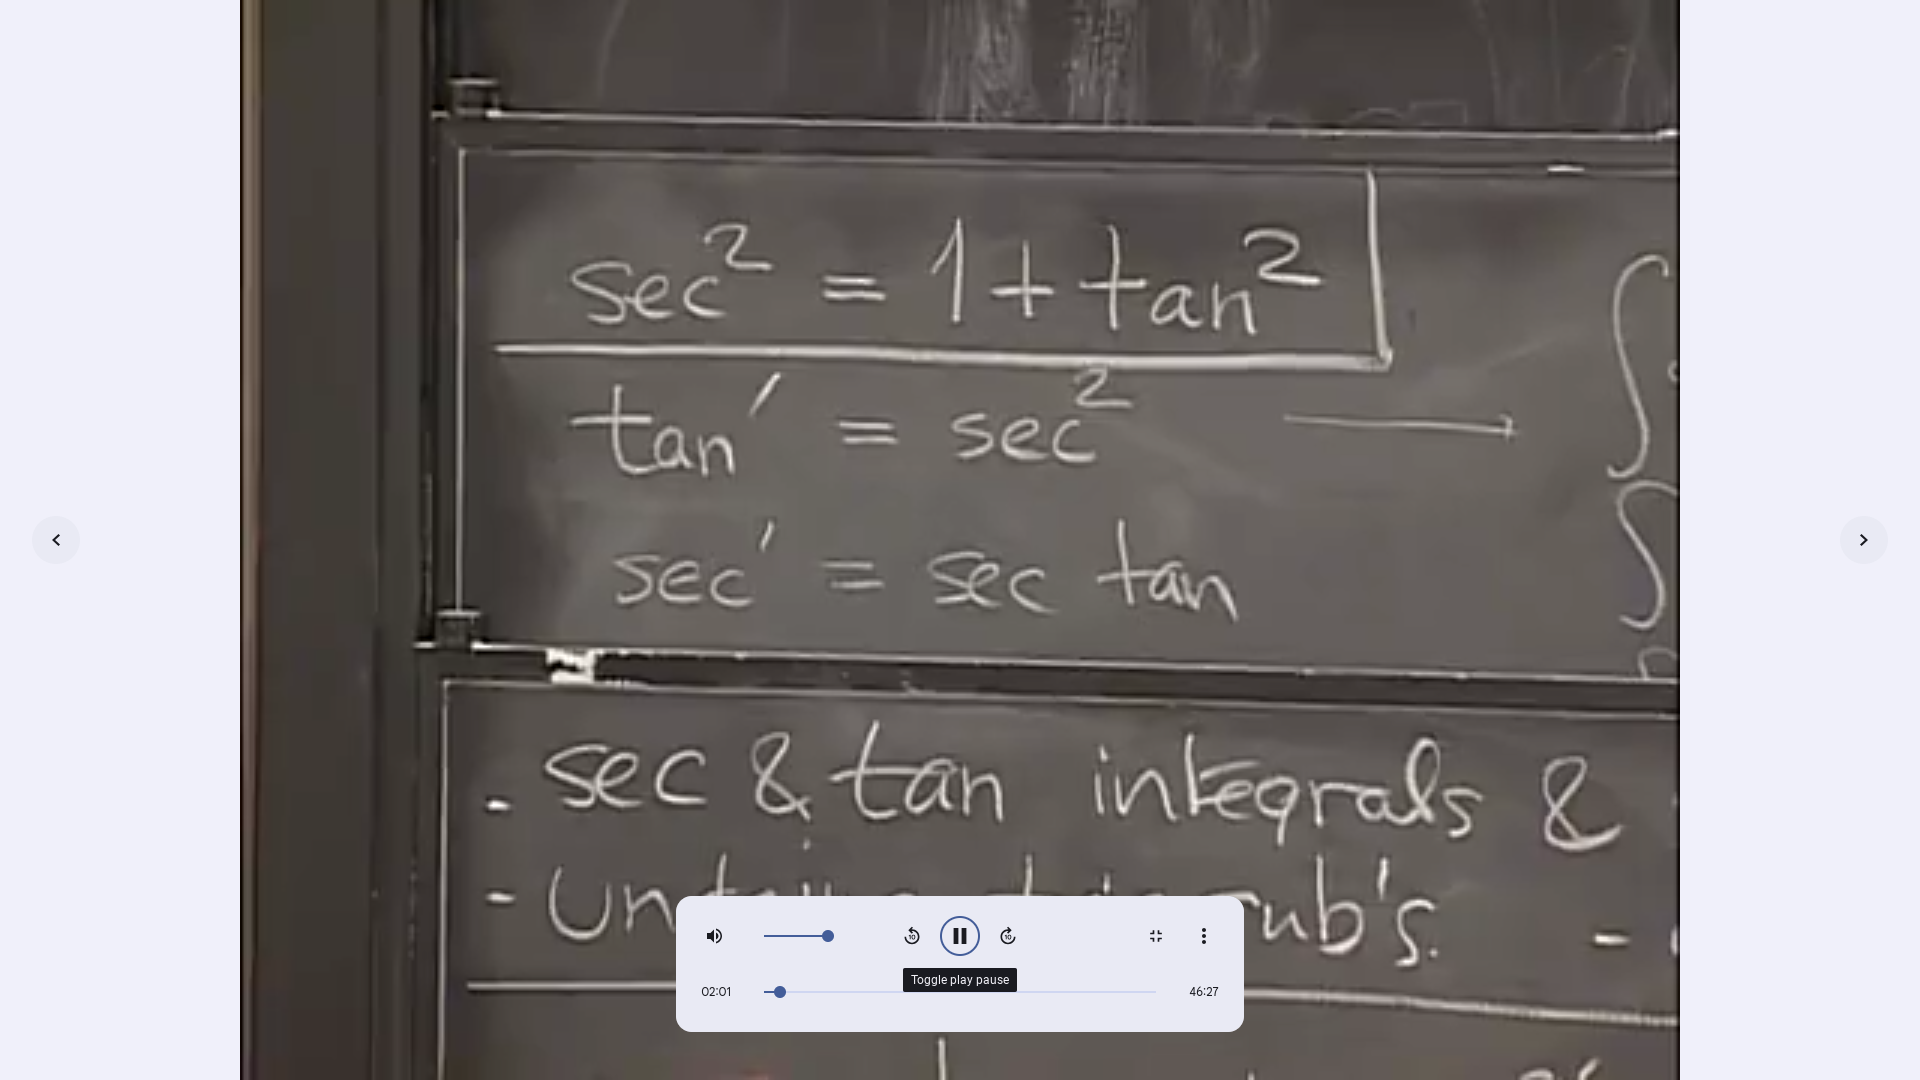 sec² = 1 + tan²
tan' = sec² →
sec' = sec tan
- sec & tan integrals &
- Un rub's. -
10 10
Toggle play pause
02:01 46:27